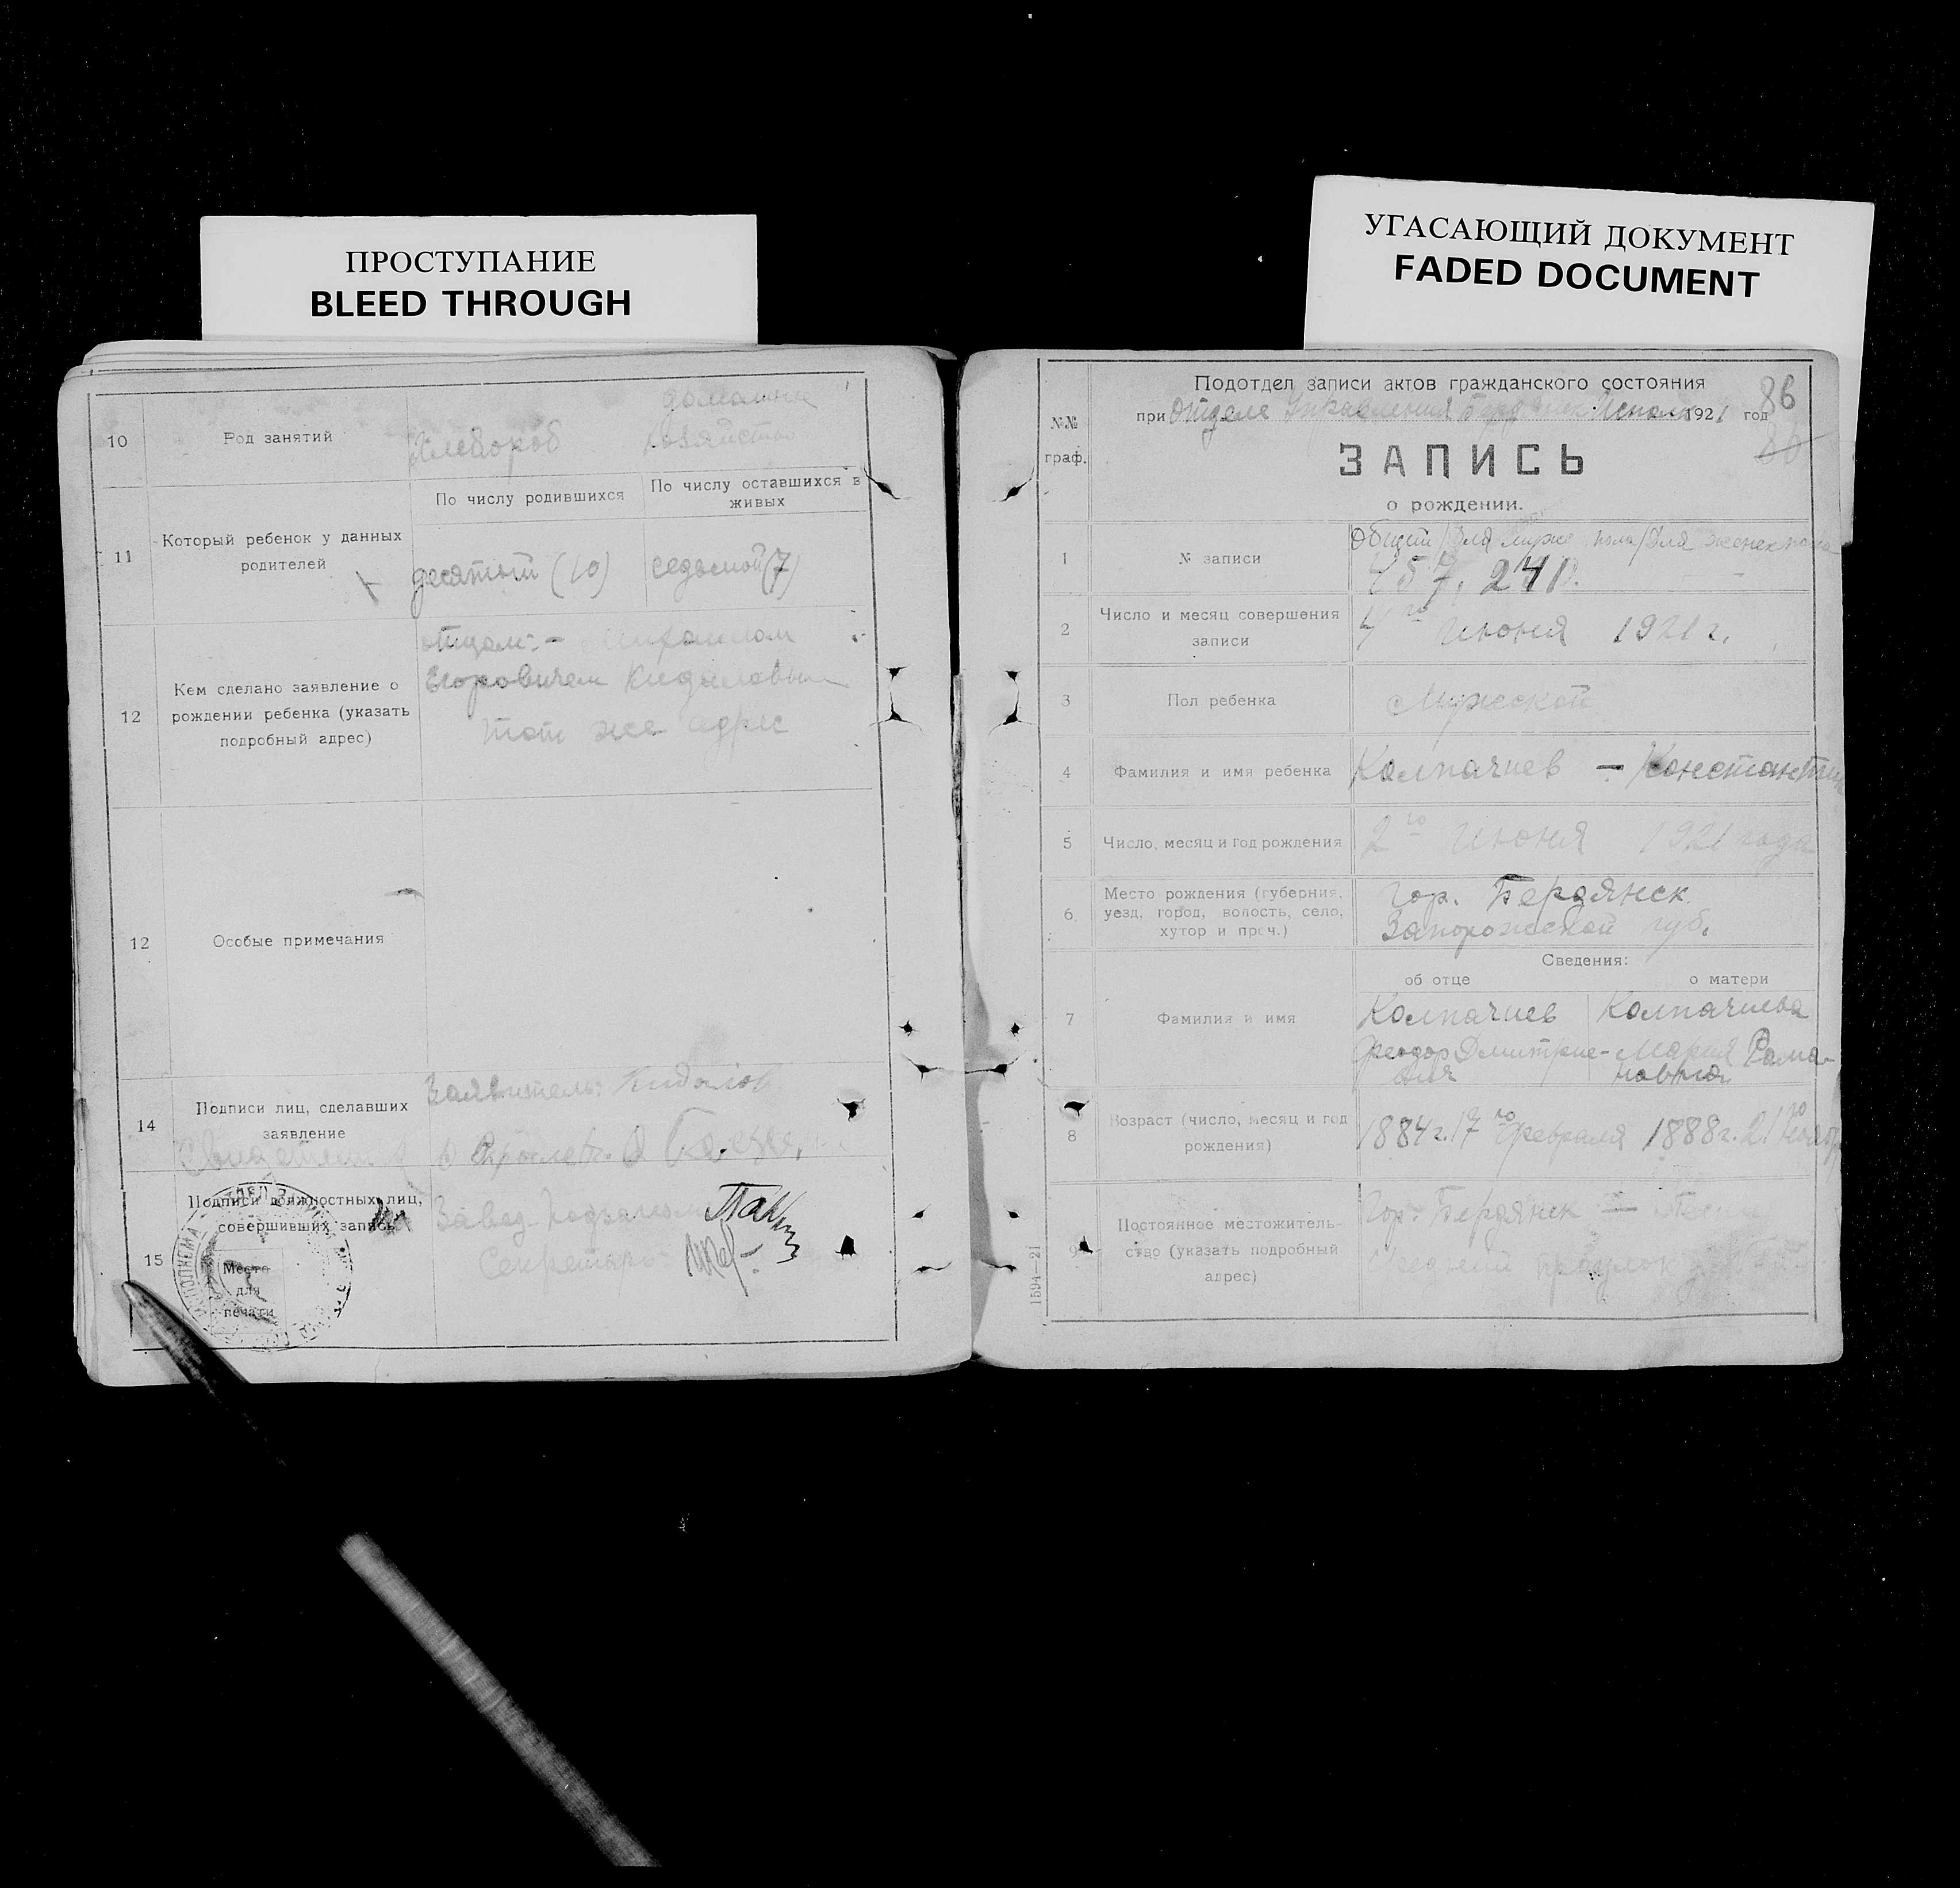 ПРОСТУПАНИЕ
BLEED THROUGH
УГАСАЮЩИЙ ДОКУМЕНТ
FADED DOCUMENT
10
Род занятий
Хлебороб
хозяйство
11
Который ребенок у данных
родителей
По числу родившихся
По числу оставшихся в
живых
десятый (10)
седьмой (7)
12
Кем сделано заявление о
рождении ребенка (указать
подробный адрес)
отцом:-
Егоровичем Кидаловым
тот же адрес
12
Особые примечания
14
Подписи лиц, сделавших
заявление
Заявитель: Кидалов
15
Подписи должностных лиц,
совершивших запись
Место
для
печати
Завед.
Секретарь
№№
граф.
Подотдел записи актов гражданского состояния
при Отделе Управления 1921 год
86
ЗАПИСЬ
о рождении.
1
№ записи
Общий
457. 241.
2
Число и месяц совершения
записи
4го июня 1921 г.
3
Пол ребенка
Мужской
4
Фамилия и имя ребенка
Колпачиев - Константин
5
Число, месяц и год рождения
2го июня 1921 года
6
Место рождения (губерния,
уезд, город, волость, село,
хутор и проч.)
гор. Бердянск
Запорожской губ.
Сведения:
об отце
о матери
7
Фамилия и имя
Колпачиев
Колпачиева
Феодор Дмитрие-
вич
Мария Рома-
новна
8
Возраст (число, месяц и год
рождения)
1884 г. 17го февраля
1888 г. 21го
9
Постоянное местожитель-
ство (указать подробный
адрес)
Гор. Бердянск —
1594—21